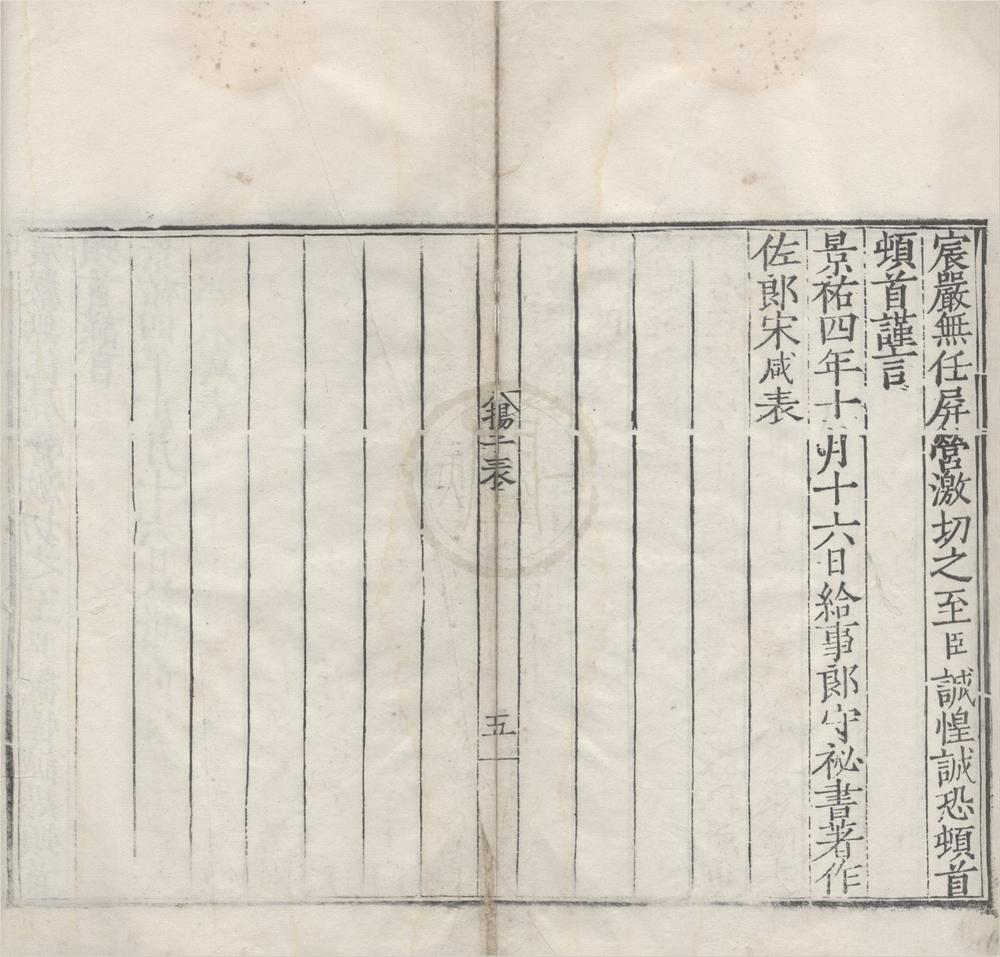 宸嚴無任屏營激切之至臣誠惶誠恐頓首
頓首謹言
景祐四年十月十六日給事郎守祕書著作
佐郎宋咸表
揚子表
五